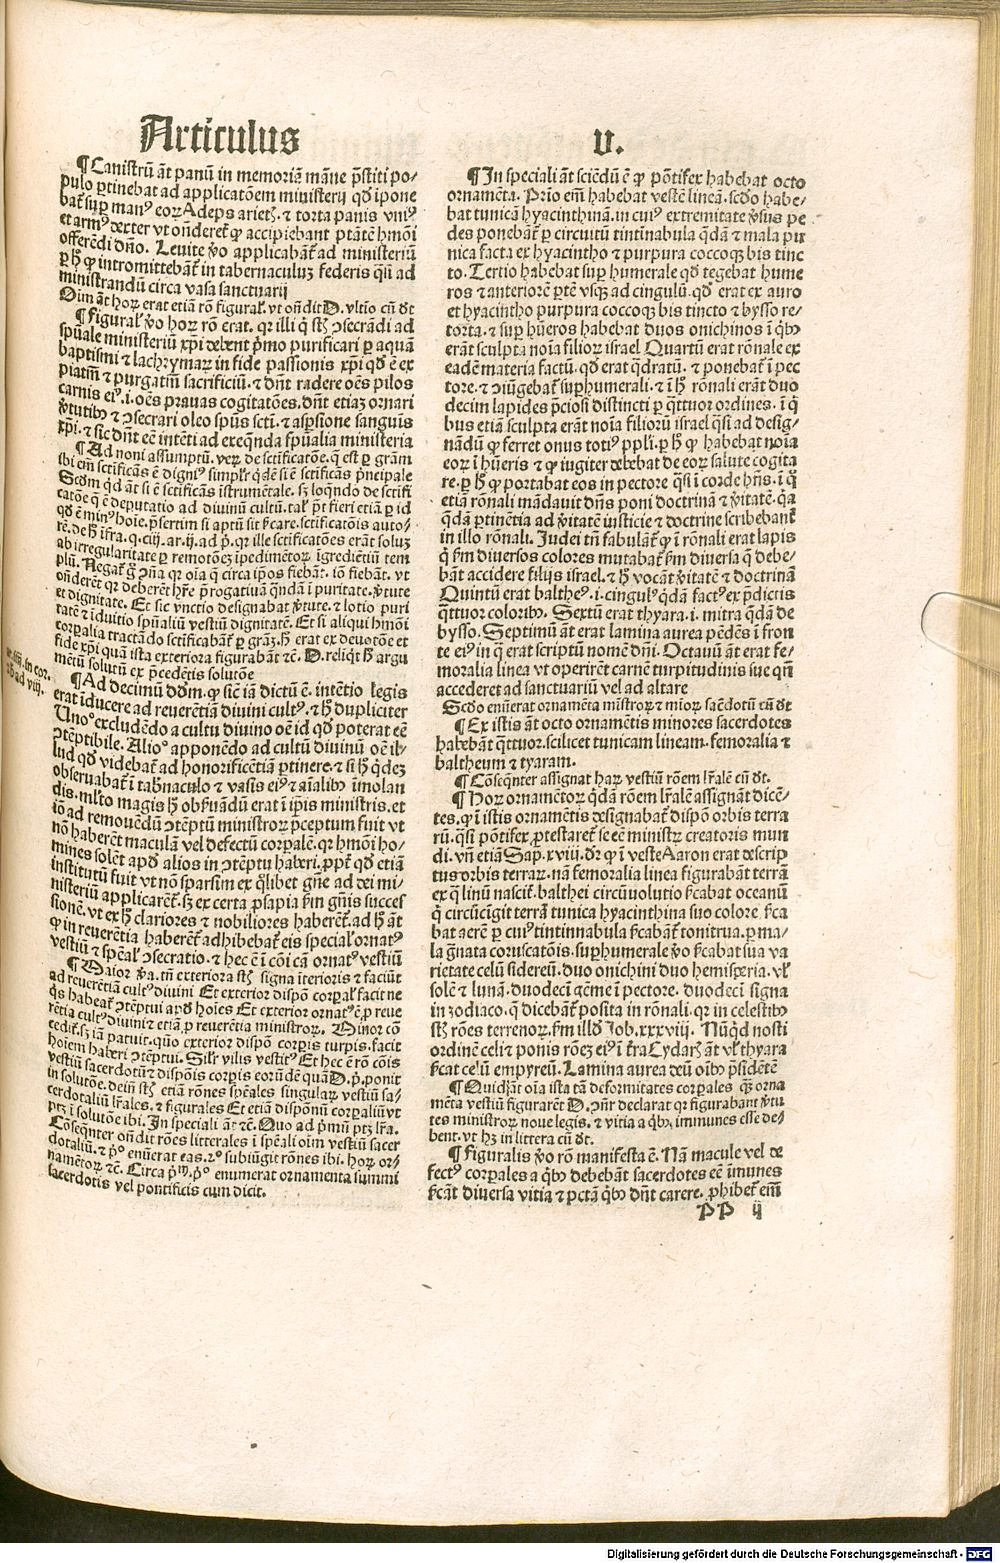 Articulus
V.
¶ Canistrū āt panū in memoriā māne p̄stiti po⸗
pulo ꝑtinebat ad applicatōem ministerij qd ipone
bat᷑ suꝑ manꝰ eoꝝ Adeps arietꝭ. ⁊ torta panis vniꝰ
et armꝰ dexter vt oñderet᷑ ꝙ accipiebant ptātē hmōi
offerēdi dño. Leuite ꝟo applicabāt᷑ ad ministeriū
ꝑ hͦ ꝙ intromittebāt᷑ in tabernaculuꝫ federis q̄si ad
ministrandū circa vasa sanctuarij
Oim āt hoꝝ erat etiā rō figural᷑. vt oñdit D. vltīo cū dt
¶ Figural᷑ ꝟo hoꝝ rō erat. qꝛ illi q̇ stꝫ ꝯsecrādi ad
spūale ministeriū xp̄i debent p̄mo purificari ꝑ aquā
baptismi ⁊ lachrymaꝝ in fide passionis xp̄i qd ē ex
piatm̄ ⁊ purgatim̄ sacrificiū. ⁊ dn̄t radere oēs pilos
carnis eiꝰ. i. oēs prauas cogitatōes. dn̄t etiaꝫ ornari
ꝟtutibꝰ ⁊ ꝯsecrari oleo spūs sctī. ⁊ aspsione sanguīs
xp̄i. ⁊ sic dn̄t eē intēti ad exeqn̄da spūalia ministeria
¶ Ad noni assumptū. veꝝ de sctificatōe. q̄ est ꝑ gr̄am
ibi em̄ sctificās ē digniꝰ simpl᷑r q̇dē si ē sctificās p̄ncipale
Scd̄m qd āt si ē sctificās īstrumētale. sꝫ loqn̄do de sctifi
catōe q̄ ē deputatio ad diuinū cultū. tal᷑ p̄t fieri etiā ꝑ id
qd ē minꝰ hoīe. p̄sertim si aptū sit ſ̄care. sctificatōis auto⸗
rē. de hͦ īfra. q. ciij. ar. ij. ad p̄. qꝛ ille sctificatōes erāt soluꝫ
ab irregularitate ꝑ remotōeꝫ īpedimētoꝝ īgrediētiū tem
plū. Negat᷑ ḡ ꝯña qꝛ oīa q̄ circa ip̄os fiebāt. iō fiebāt. vt
oñderēt᷑ qꝛ deberēt hr̄e p̄rogatiuā qn̄dā ī puritate. ꝟtute
et dignitate. Et sic vnctio designabat ꝟtute. ⁊ lotio puri
tatē ⁊ īduitio spūaliū vestiū dignitatē. Et si aliqui hmōi
corꝑalia tractādo sctificabāt᷑ ꝑ gr̄aꝫ. hͦ erat ex deuotōe et
fide xp̄i quā ista exteriora figurabāt ⁊c̄. D. reliqt hͦ argu
mētū solutū ex p̄cedētis solutōe
ar. iiij. in cor.
⁊ ad vij.
¶ Ad decimū dd̄m. ꝙ sic̄ iā dictū ē. intētio legis
erat īducere ad reuerētiā diuini cultꝰ. ⁊ hͦ dupliciter
Unoº excludēdo a cultu diuino oē id qd poterat eē
ꝯtēptibile. Alioº apponēdo ad cultū diuinū oē il⸗
lud qd videbat᷑ ad honorificētiā ꝑtinere. ⁊ si hͦ q̇deꝫ
obseruabat᷑ ī tabnaculo ⁊ vasis eiꝰ ⁊ aīalibꝰ īmolan
dis. ml̄to magis hͦ obſuandū erat ī ip̄is ministris. et
iō ad remouēdū ꝯtēptū ministroꝝ p̄ceptum fuit vt
nō haberēt maculā vel defectū corꝑalē. qꝛ hmōi ho⸗
mines solēt apd̄ alios in ꝯtēptu haberi. ꝓpt̄ qd etiā
institutū fuit vt nō sparsim ex q̇libet gn̄e ad dei mi⸗
nisteriū applicarēt᷑. sꝫ ex certa ꝓsapia ſm gn̄is succes
sionē. vt ex hͦ clariores ⁊ nobiliores haberēt᷑. ad hͦ āt
ꝙ in reuerētia haberēt᷑ adhibebat᷑ eis special᷑ ornatꝰ
vestiū ⁊ spēal᷑ ꝯsecratio. ⁊ hec ē ī cōi cā ornatꝰ vestiū
¶ Maior ꝟa. tn̄ exteriora stꝫ signa īterioris ⁊ faciūt
ad reuerētiā cultꝰ diuini Et exterior dispō corꝑal᷑ facit ne
q̇s habeat᷑ ꝯtēptui apd̄ hoīes Et exterior ornatꝰ ē ꝓ reue
rētia cultꝰ diuini ⁊ etiā ꝓ reuerētia ministroꝝ. Minor cō
cedit᷑. sꝫ iā patuit. quō exterior dispō corꝑis turpis. facit
hoīem haberi ꝯtēptui. Sil᷑r vilis vestitꝰ Et hec ē rō cōis
vestiū sacerdotū ⁊ dispōis corꝑis eorūdē quā D. p̄. ponit
in solutōe. dein̄ stꝫ etiā rōnes spēales singulaꝝ vestiū sa⸗
cerdotaliū lr̄ales. ⁊ figurales Et etiā dispōnū corꝑaliū vt
ptꝫ ī solutōe ibi. In speciali āt ⁊c̄. Quo ad p̄mū ptꝫ lr̄a.
Cōseqn̄ter oñdit rōes litterales ī spēali oīm vestiū sacer
dotaliū. ⁊ p̄º enūerat eas. 2º subiūgit rōnes ibi. hoꝝ or⸗
namētoꝝ ⁊c̄. Circa p̄m̄. p̄º enumerat ornamenta summi
sacerdotis vel pontificis cum dicit.
¶ In speciali āt sciēdū ē ꝙ pōtifex habebat octo
ornamēta. Prīo em̄ habebat vestē lineā. scd̄o habe⸗
bat tunicā hyacinthinā. in cuiꝰ extremitate ꝟsus pe
des ponebāt᷑ ꝑ circuitū tintinabula q̄dā ⁊ mala pu
nica facta ex hyacintho ⁊ purpura coccoqꝫ bis tinc
to. Tertio habebat suꝑhumerale qd tegebat hume
ros ⁊ anteriorē ꝑtē vsqꝫ ad cingulū. qd erat ex auro
et hyacintho purpura coccoqꝫ bis tincto ⁊ bysso re⸗
torta. ⁊ suꝑ hūeros habebat duos onichinos ī q̇bꝰ
erāt sculpta noīa filioꝝ israel Quartū erat rōnale ex
eadē materia factū. qd erat q̄dratū. ⁊ ponebat᷑ ī pec
tore. ⁊ ꝯiūgebat᷑ suꝑhumerali. ⁊ ī hͦ rōnali erāt duo
decim lapides p̄ciosi distincti ꝑ q̄ttuor ordines. ī q̇
bus etiā sculpta erāt noīa filiorū israel q̄si ad desig⸗
nādū ꝙ ferret onus totiꝰ ppl̄i. ꝑ hͦ ꝙ habebat noīa
eoꝝ ī hūeris ⁊ ꝙ iugiter debebat de eoꝝ salute cogita
re. ꝑ hͦ ꝙ portabat eos in pectore q̄si ī corde hn̄s. ī q̇
etiā rōnali mādauit dn̄s poni doctrinā ⁊ ꝟitatē. qꝛ
q̄dā ꝑtinētia ad ꝟitatē iusticie ⁊ doctrine scribebant᷑
in illo rōnali. Iudei tn̄ fabulāt᷑ ꝙ ī rōnali erat lapis
q̇ ſm diuersos colores mutabat᷑ ſm diuersa q̄ debe⸗
bāt accidere filijs israel. ⁊ hͦ vocāt ꝟitatē ⁊ doctrinā
Quintū erat baltheꝰ. i. cingulꝰ q̇dā factꝰ ex p̄dictis
q̄ttuor coloribꝰ. Sextū erat thyara. i. mitra q̄dā de
bysso. Septimū āt erat lamina aurea pēdēs ī fron
te eiꝰ in q̄ erat scriptū nomē dn̄i. Octauū āt erāt fe⸗
moralia linea vt operirēt carnē turpitudinis sue qn̄
accederet ad sanctuariū vel ad altare
Scd̄o enūerat ornamēta mīstroꝝ ⁊ mīoꝝ sac̄dotū cū dt
¶ Ex istis āt octo ornamētis minores sacerdotes
habebāt q̄ttuor. scilicet tunicam lineam. femoralia ⁊
baltheum ⁊ tyaram.
¶ Cōseqn̄ter assignat haꝝ vestiū rōem lr̄alē cū dt.
¶ Hoꝝ ornamētoꝝ q̄dā rōem lr̄alē assignāt dicē⸗
tes. ꝙ ī istis ornamētis designabat᷑ dispō orbis terra
rū. q̄si pōtifex ꝓtestaret᷑ se eē ministꝝ creatoris mun
di. vn̄ etiā Sap. xviij. dr̄ ꝙ ī veste Aaron erat descrip
tus orbis terraꝝ. nā femoralia linea figurabāt terrā
ex q̄ linū nascit᷑. balthei circūuolutio ſcabat oceanū
q̇ circūcingit terrā tunica hyacinthina suo colore ſca
bat aerē ꝑ cuiꝰ tintinnabula ſcabāt᷑ tonitrua. ꝑ ma⸗
la gn̄ata coruscatōis. suꝑhumerale ꝟo ſcabat sua va
rietate celū sidereū. duo onichini duo hemisperia. vl᷑
solē ⁊ lunā. duodecī gēme ī pectore. duodecī signa
in zodiaco. q̄ dicebāt᷑ posita in rōnali. qꝛ in celestibꝰ
stꝫ rōes terrenoꝝ. ſm illd̄ Job. xxxviij. Nūqd nosti
ordinē celi ⁊ ponis rōeꝫ eiꝰ ī t̄ra Cydarꝭ āt vl᷑ thyara
ſcat celū empyreū. Lamina aurea deū oībꝰ p̄sidētē
¶ Quidā āt oīa ista tā deformitates corꝑales qꝫ orna
mēta vestiū figurarēt D. ꝯn̄r declarat qꝛ figurabant ꝟtu
tes ministroꝝ noue legis. ⁊ vitia a q̇bꝰ immunes esse de⸗
bent. vt hꝫ in littera cū dt.
¶ Figuralis ꝟo rō manifesta ē. Nā macule vel de
fectꝰ corꝑales a q̇bꝰ debebāt sacerdotes eē īmunes
ſcāt diuersa vitia ⁊ pctā q̇bꝰ dn̄t carere. ꝓhibet᷑ em̄
PP ij
Digitalisierung gefördert durch die Deutsche Forschungsgemeinschaft - DFG